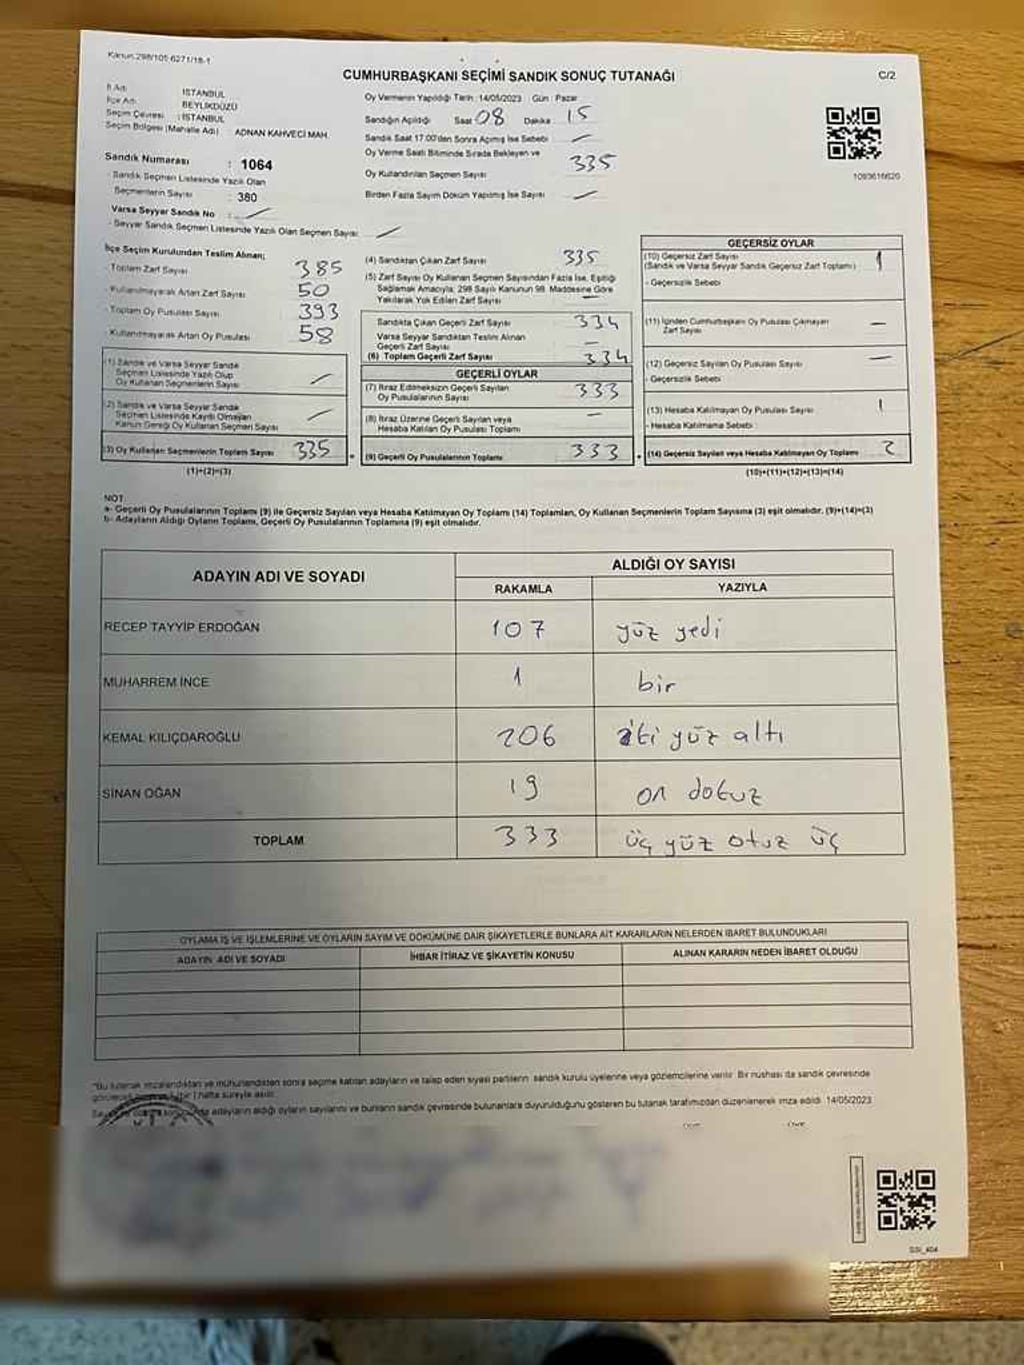 Kanun:298/105 6271/18-1
CUMHURBAŞKANI SEÇİMİ SANDIK SONUÇ TUTANAĞI
C/2
İl Adı : İSTANBUL
İlçe Adı : BEYLİKDÜZÜ
Seçim Çevresi : İSTANBUL
Seçim Bölgesi (Mahalle Adı) : ADNAN KAHVECİ MAH.
Sandık Numarası : 1064
- Sandık Seçmen Listesinde Yazılı Olan
Seçmenlerin Sayısı : 380
Varsa Seyyar Sandık No :
- Seyyar Sandık Seçmen Listesinde Yazılı Olan Seçmen Sayısı:
Oy Vermenin Yapıldığı Tarih :14/05/2023 Gün : Pazar
Sandığın Açıldığı Saat 08 Dakika 15
Sandık Saat 17:00'den Sonra Açılmış İse Sebebi :
Oy Verme Saati Bitiminde Sırada Bekleyen ve
Oy Kullandırılan Seçmen Sayısı 335
Birden Fazla Sayım Döküm Yapılmış İse Sayısı
1093616620
İlçe Seçim Kurulundan Teslim Alınan;
- Toplam Zarf Sayısı 385
- Kullanılmayarak Artan Zarf Sayısı 50
- Toplam Oy Pusulası Sayısı 393
- Kullanılmayarak Artan Oy Pusulası 58
(1) Sandık ve Varsa Seyyar Sandık
Seçmen Listesinde Yazılı Olup
Oy Kullanan Seçmenlerin Sayısı
(2) Sandık ve Varsa Seyyar Sandık
Seçmen Listesinde Kayıtlı Olmayan
Kanun Gereği Oy Kullanan Seçmen Sayısı
(3) Oy Kullanan Seçmenlerin Toplam Sayısı 335
(1)+(2)=(3)
(4) Sandıktan Çıkan Zarf Sayısı 335
(5) Zarf Sayısı Oy Kullanan Seçmen Sayısından Fazla İse, Eşitliği
Sağlamak Amacıyla; 298 Sayılı Kanunun 98. Maddesine Göre
Yakılarak Yok Edilen Zarf Sayısı —
Sandıkta Çıkan Geçerli Zarf Sayısı 334
Varsa Seyyar Sandıktan Teslim Alınan
Geçerli Zarf Sayısı —
(6) Toplam Geçerli Zarf Sayısı 334
GEÇERLİ OYLAR
(7) İtiraz Edilmeksizin Geçerli Sayılan
Oy Pusulalarının Sayısı 333
(8) İtiraz Üzerine Geçerli Sayılan veya
Hesaba Katılan Oy Pusulası Toplamı —
(9) Geçerli Oy Pusulalarının Toplamı 333
GEÇERSİZ OYLAR
(10) Geçersiz Zarf Sayısı 1
(Sandık ve Varsa Seyyar Sandık Geçersiz Zarf Toplamı)
- Geçersizlik Sebebi :
(11) İçinden Cumhurbaşkanı Oy Pusulası Çıkmayan
Zarf Sayısı —
(12) Geçersiz Sayılan Oy Pusulası Sayısı —
- Geçersizlik Sebebi :
(13) Hesaba Katılmayan Oy Pusulası Sayısı 1
- Hesaba Katılmama Sebebi :
(14) Geçersiz Sayılan veya Hesaba Katılmayan Oy Toplamı 2
(10)+(11)+(12)+(13)=(14)
NOT
a- Geçerli Oy Pusulalarının Toplamı (9) ile Geçersiz Sayılan veya Hesaba Katılmayan Oy Toplamı (14) Toplamları, Oy Kullanan Seçmenlerin Toplam Sayısına (3) eşit olmalıdır. (9)+(14)=(3)
b- Adayların Aldığı Oyların Toplamı, Geçerli Oy Pusulalarının Toplamına (9) eşit olmalıdır.
ADAYIN ADI VE SOYADI
ALDIĞI OY SAYISI
RAKAMLA YAZIYLA
RECEP TAYYİP ERDOĞAN 107 yüz yedi
MUHARREM İNCE 1 bir
KEMAL KILIÇDAROĞLU 206 iki yüz altı
SİNAN OĞAN 19 on dokuz
TOPLAM 333 üç yüz otuz üç
OYLAMA İŞ VE İŞLEMLERİNE VE OYLARIN SAYIM VE DÖKÜMÜNE DAİR ŞİKAYETLERLE BUNLARA AİT KARARLARIN NELERDEN İBARET BULUNDUKLARI
ADAYIN ADI VE SOYADI İHBAR İTİRAZ VE ŞİKAYETİN KONUSU ALINAN KARARIN NEDEN İBARET OLDUĞU
"Bu tutanak imzalandıktan ve mühürlendikten sonra seçime katılan adayların ve talep eden siyasi partilerin sandık kurulu üyelerine veya gözlemcilerine verilir. Bir nüshası da sandık çevresinde
hafta süreyle asılır.
adayların aldığı oyların sayılarını ve bunların sandık çevresinde bulunanlara duyurulduğunu gösteren bu tutanak tarafımızdan düzenlenerek imza edildi. 14/05/2023
SSI_404